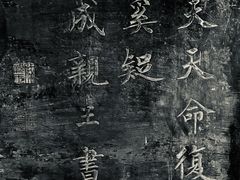 夫天命復
奚疑
成親王書